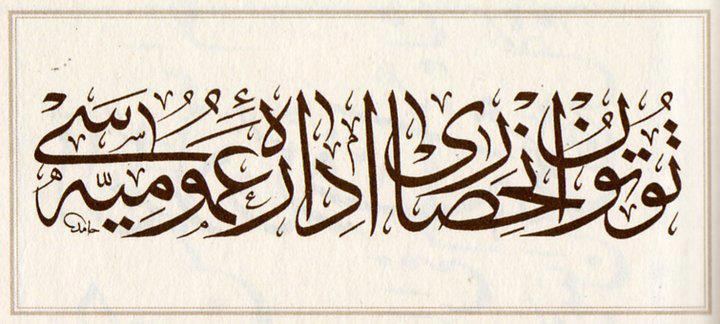 توتون انحصاری ادارهٔ عمومیه‌سی
حامد